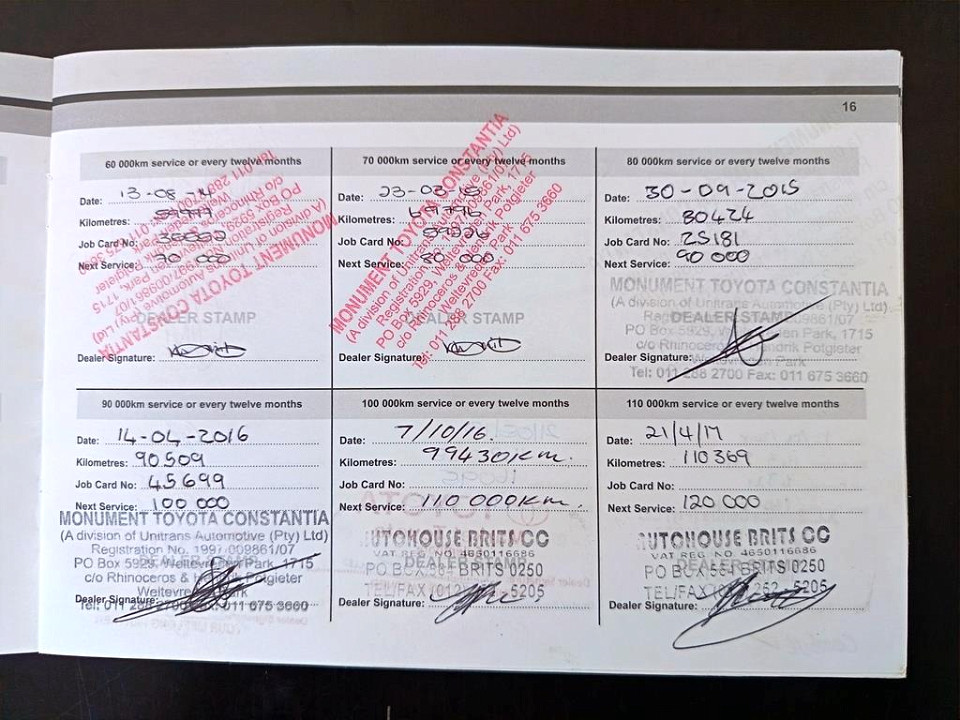 16
60 000km service or every twelve months
Date: 13-08-14
Kilometres: 59777
Job Card No:
Next Service: 70 000
MONUMENT TOYOTA CONSTANTIA
(A division of Unitrans Automotive (Pty) Ltd)
DEALER STAMP
Dealer Signature:
70 000km service or every twelve months
Date: 23-03-15
Kilometres:
Job Card No:
Next Service: 80 000
MONUMENT TOYOTA CONSTANTIA
(A division of Unitrans Automotive (Pty) Ltd)
PO Box 5929, Weltevreden Park, 1715
c/o Rhinoceros & Hendrik Potgieter
Weltevreden Park
Tel: 011 288 2700 Fax: 011 675 3660
DEALER STAMP
Dealer Signature:
80 000km service or every twelve months
Date: 30-09-2015
Kilometres: 80424
Job Card No: 25181
Next Service: 90 000
MONUMENT TOYOTA CONSTANTIA
(A division of Unitrans Automotive (Pty) Ltd)
DEALER STAMP
PO Box 5929, Weltevreden Park, 1715
c/o Rhinoceros & Hendrik Potgieter
Weltevreden Park
Dealer Signature:
Tel: 011 288 2700 Fax: 011 675 3660
90 000km service or every twelve months
Date: 14-04-2016
Kilometres: 90509
Job Card No: 45699
Next Service: 100 000
MONUMENT TOYOTA CONSTANTIA
(A division of Unitrans Automotive (Pty) Ltd)
Registration No. 1997/009861/07
PO Box 5929, Weltevreden Park, 1715
DEALER STAMP
c/o Rhinoceros & Hendrik Potgieter
Weltevreden Park
Dealer Signature:
Tel: 011 288 2700 Fax: 011 675 3660
100 000km service or every twelve months
Date: 7/10/16.
Kilometres: 99430km.
Job Card No:
Next Service: 110 000km.
AUTOHOUSE BRITS CC
VAT REG NO. 4650116686
DEALER STAMP
PO BOX 584 BRITS 0250
TEL/FAX (012) 252 5205
Dealer Signature:
110 000km service or every twelve months
Date: 21/4/17
Kilometres: 110369
Job Card No:
Next Service: 120 000
AUTOHOUSE BRITS CC
VAT REG NO. 4650116686
DEALER STAMP
PO BOX 584 BRITS 0250
TEL/FAX (012) 252 5205
Dealer Signature: